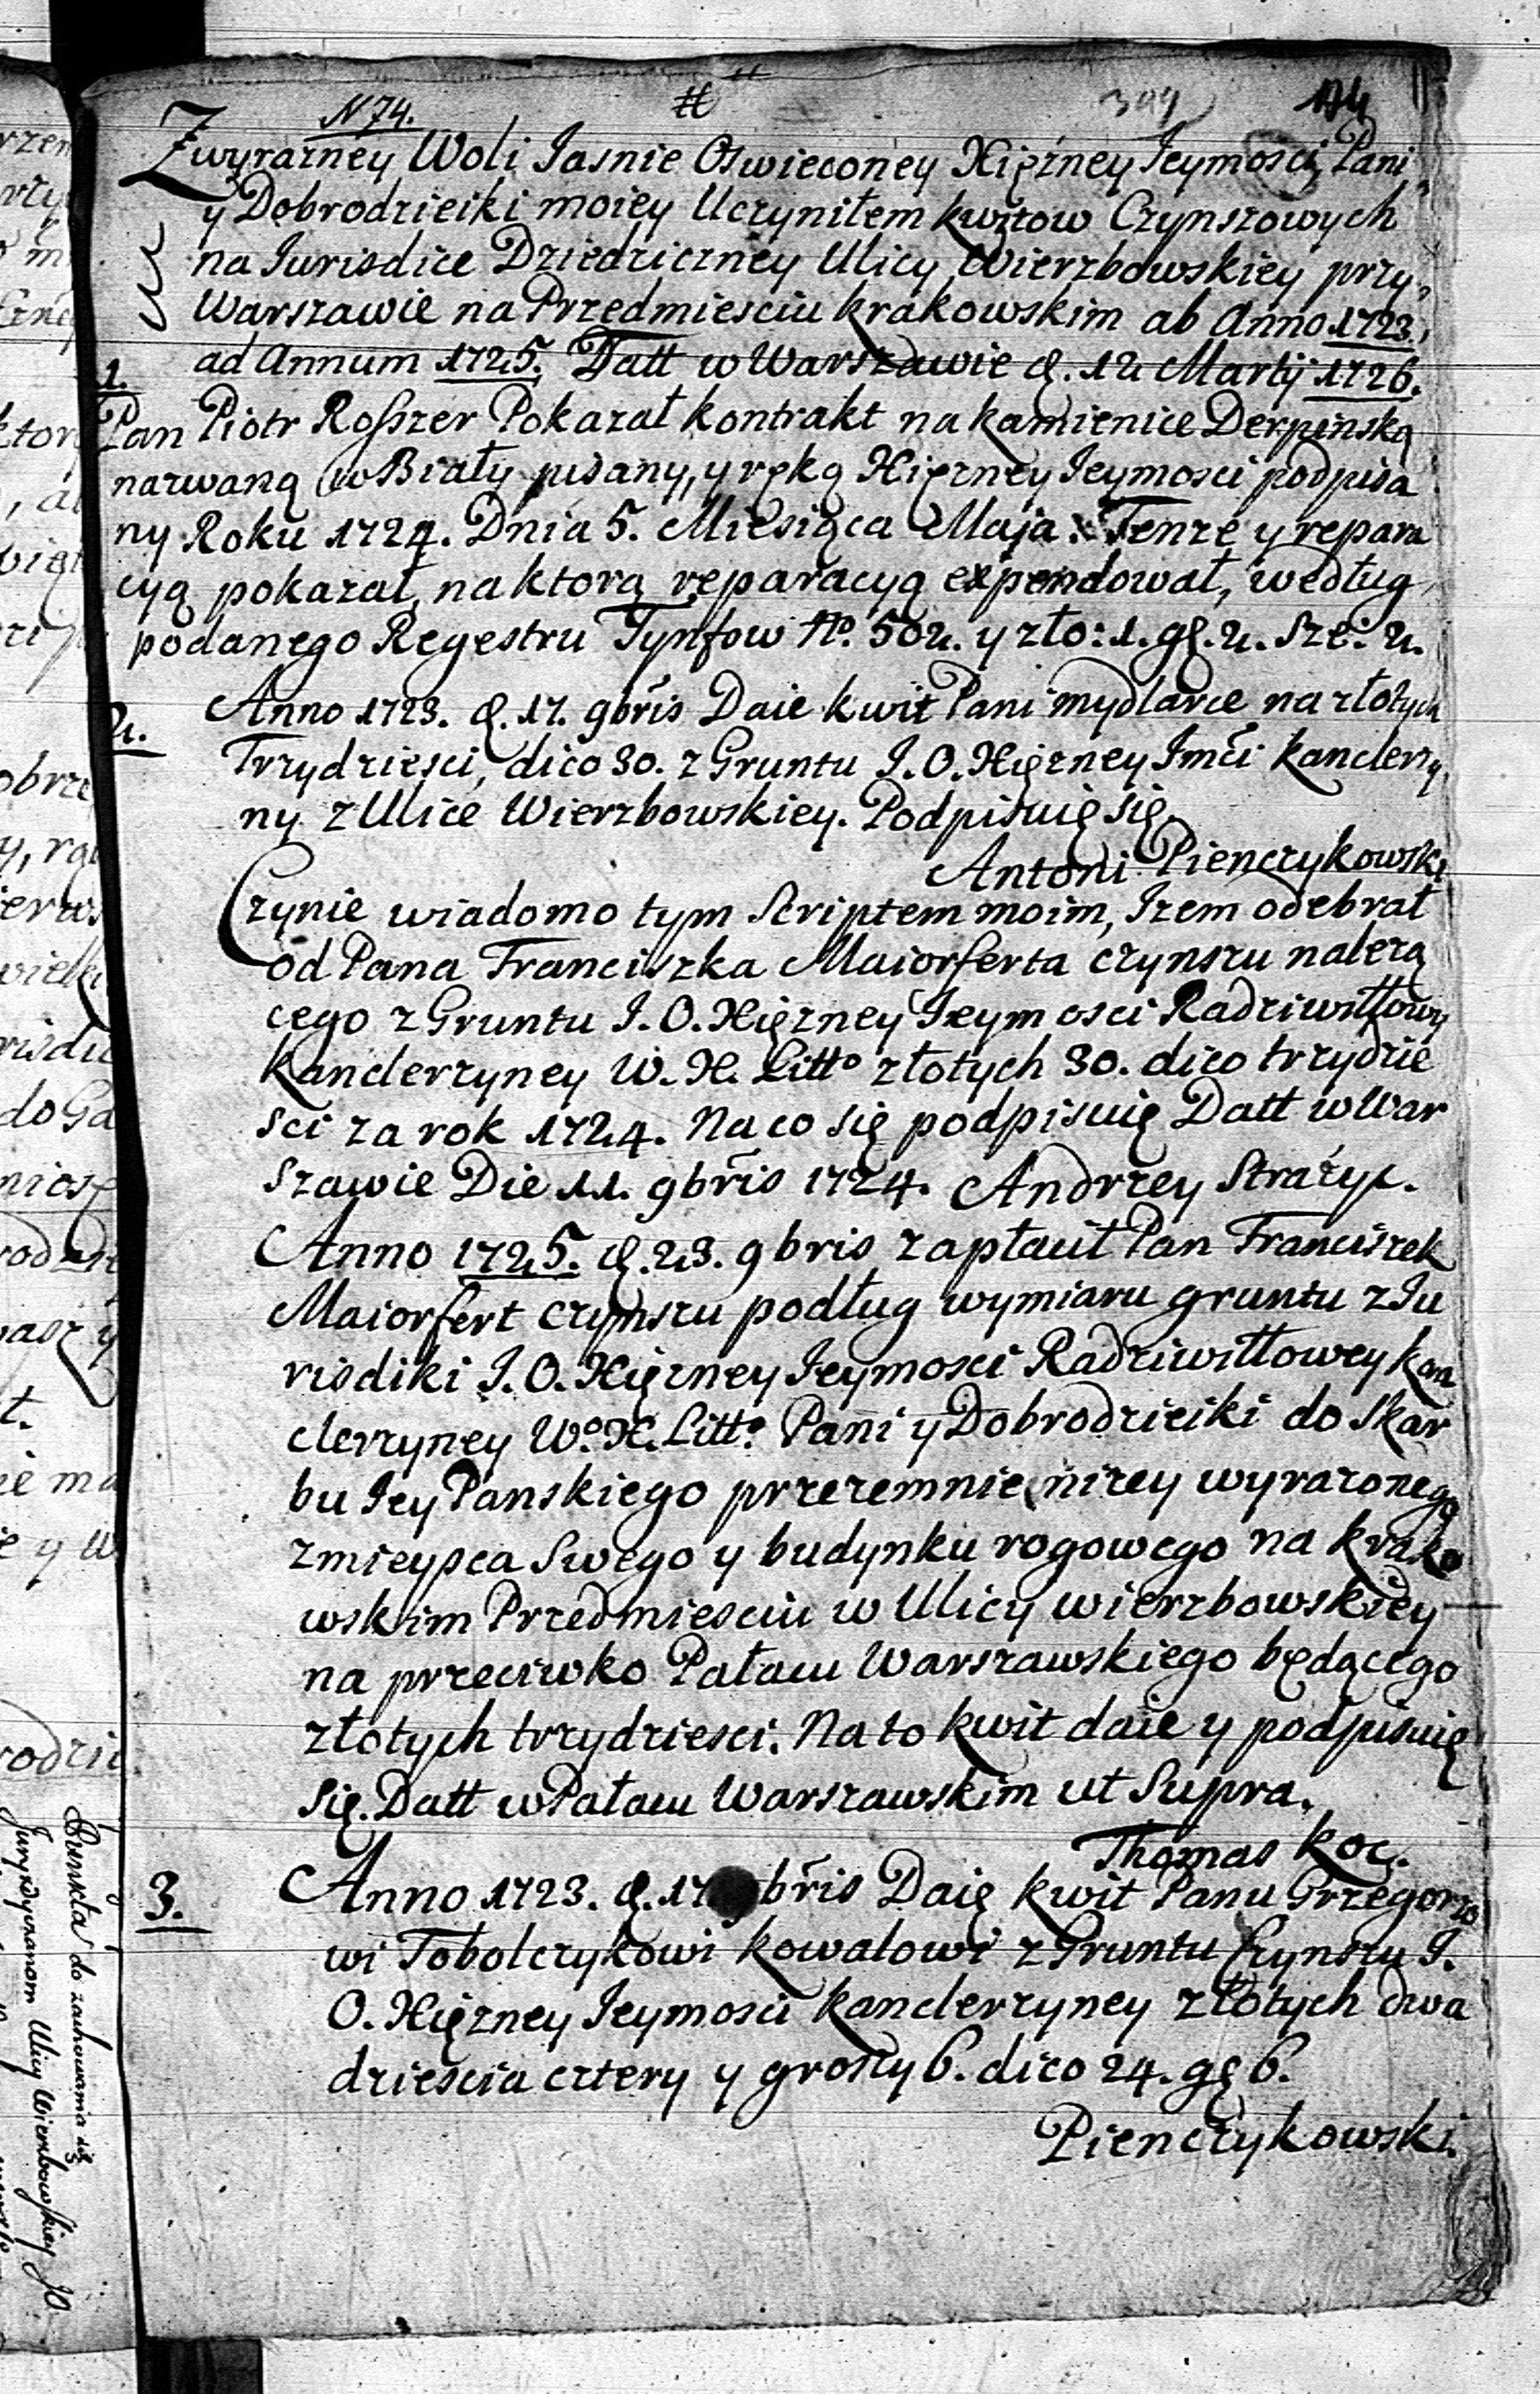 N 74.
399
Z wyrazney Woli Jasnie Oswieconey Xięzney Jeymosci Pani
y Dobrodzieiki moiey Uczyniłem kwitow Czynszowych
na Jurisdice Dziedziczney Ulicy Wierzbowskiey przy
Warszawie na Przedmiesciu krakowskim ab Anno 1723.
ad Annum 1725. Datt w Warszawie d. 12 Martij 1726.
1.
Pan Piotr Roszer Pokazał kontrakt na kamienice Derpinską
nazwaną w Biały pisany, y ręką Xięzney Jeymosci podpisa
ny Roku 1724. Dnia 5. Miesiąca Maja. Tenze y repara
cyą pokazał, na ktorą reparacyą expendował, według
podanego Regestru Tynfow No. 502. y zło: 1. gl. 2. Sze: 2.
2.
Anno 1723. d. 17. gbris Daie kwit Pani mydlarce na złotych
Trzydziesci, dico 30. z Gruntu J. O. Xięzney Jmci kanclerzy
ny z Ulice Wierzbowskiey. Podpisuię się.
Antoni Pienczykowski
Czynie wiadomo tym Scriptem moim, Izem odebrał
od Pana Franciszka Maiorferta czynszu nalezą
cego z Gruntu J. O. Xięzney Jeymosci Radziwiłłowy
Kanclerzyney W. X. Litto złotych 30. dico trzydzie
sci za rok 1724. Na co się podpisuię Datt w War
szawie Die 11. gbris 1724. Andrzey Strazyc.
Anno 1725. d. 23. gbris zapłacił Pan Franciszek
Maiorfert czynszu podług wymiaru gruntu z Ju
risdiki J. O. Xięzney Jeymosci Radziwiłłowey kan
clerzyney Wo. X. Litto. Pani y Dobrodzieiki do Skar
bu Jey Panskiego przezemnie nizey wyrazonego
z mieysca Swego y budynku rogowego na krako
wskim Przedmiesciu w Ulicy wierzbowskiey
na przeciwko Pałacu Warszawskiego będącego
złotych trzydziesci. Na to kwit daie y podpisuię
się. Datt w Pałacu Warszawskim ut Supra.
Thomas Koc.
3.
Anno 1723. d. 17 gbris Daię kwit Panu Grzegorzo
wi Tobolczykowi kowalowi z Gruntu Czynszu J.
O. Xięzney Jeymosci kanclerzyney złotych dwa
dziescia cztery y groszy 6. dico 24. gl 6.
Pienczykowski.
Punkta do zachowania się
Jurysdyczanom Ulicy Wierzbowskiey JO